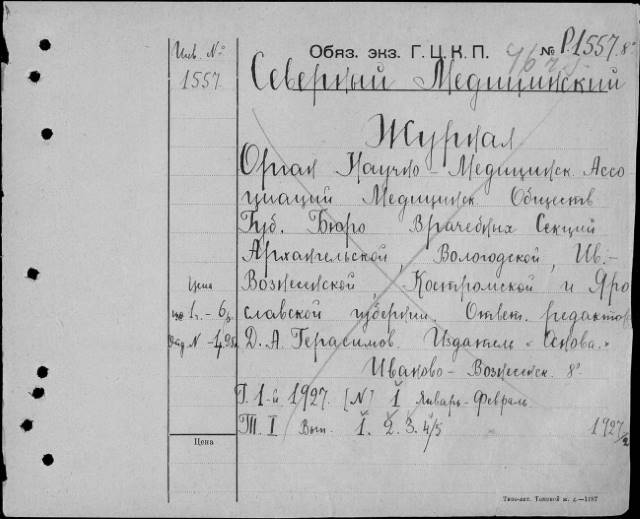 Инв. №
1557
Обяз. экз. Г.Ц.К.П.
№ Р.1557. 8°
Северный Медицинский
Журнал
Орган Научно-Медицинск. Ассо
циаций Медицинск. Обществ
Губ. Бюро Врачебных Секций
Архангельской, Вологодской, Ив.-
Вознесенской, Костромской и Яро
славской губернии. Ответ. редактор
Д. А. Герасимов. Издатель "Основа."
Иваново-Вознесенск. 8°
Г. 1-й 1927. [N] 1 Январь-Феврал.
Т. I Вып. 1. 2. 3. 4/5
1927
Цена
1 г. - 6 р.
N - 1.95
Цена
Типо-лит. Таганской ж. д.—1187